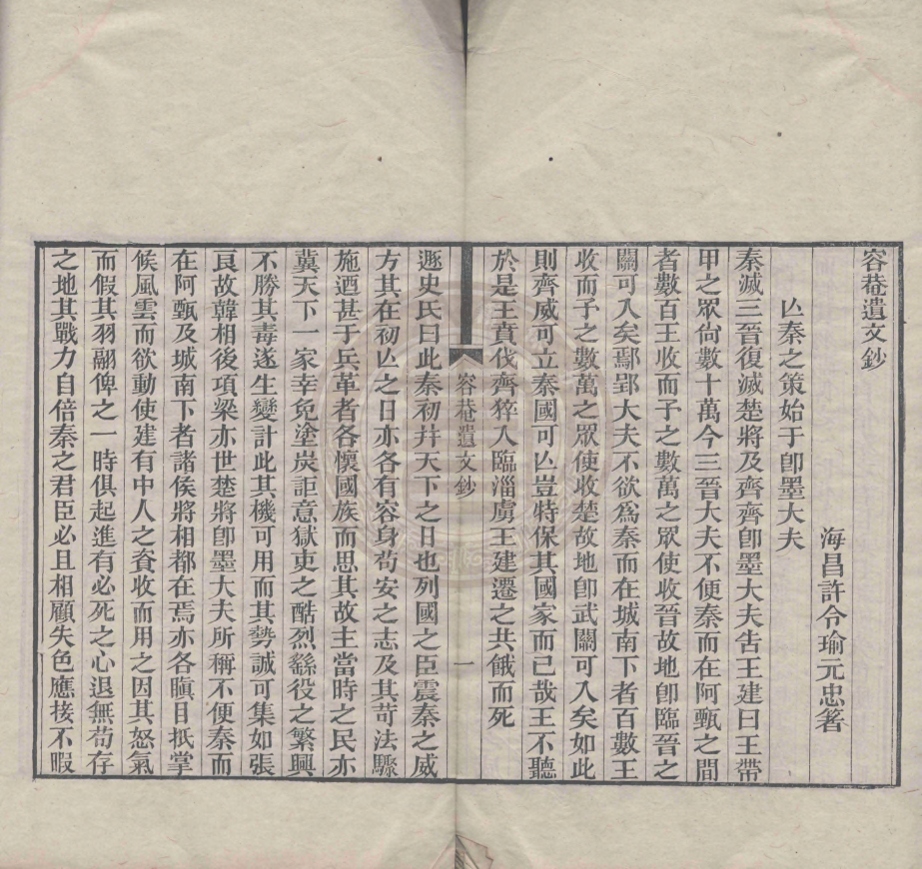 容菴遺文鈔
海昌許令瑜元忠著
亾秦之策始于卽墨大夫
秦滅三晉復滅楚將及齊齊卽墨大夫告王建曰王帶
甲之眾尙數十萬今三晉大夫不便秦而在阿甄之間
者數百王收而予之數萬之眾使收晉故地卽臨晉之
關可入矣鄢郢大夫不欲爲秦而在城南下者百數王
收而予之數萬之眾使收楚故地卽武關可入矣如此
則齊威可立秦國可亾豈特保其國家而已哉王不聽
於是王賁伐齊猝入臨淄虜王建遷之共餓而死
容菴遺文鈔
一
遜史氏曰此秦初幷天下之日也列國之臣震秦之威
方其在初亾之日亦各有容身苟安之志及其苛法驟
施酒甚于兵革者各懷國族而思其故主當時之民亦
冀天下一家幸免塗炭詎意獄吏之酷烈繇役之繁興
不勝其毒遂生變計此其機可用而其勢誠可集如張
良故韓相後項梁亦世楚將卽墨大夫所稱不便秦而
在阿甄及城南下者諸侯將相都在焉亦各瞋目扺掌
候風雲而欲動使建有中人之資收而用之因其怒氣
而假其羽翮俾之一時俱起進有必死之心退無苟存
之地其戰力自倍秦之君臣必且相顧失色應接不暇